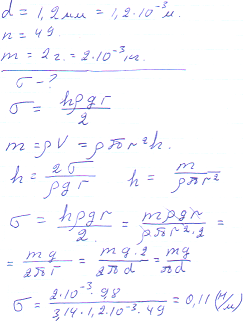 d = 1,2 мм = 1,2·10⁻³ м.
n = 49.
m = 2 г. = 2·10⁻³ кг.
σ - ?
σ = hρgr / 2
m = ρV = ρπr²h.
h = 2σ / ρgr   h = m / ρπr²
σ = hρgr / 2 = mρgr / ρπr²·2 =
= mg / 2πr = mg·2 / 2πd = mg / πd
σ = 2·10⁻³·9,8 / 3,14·1,2·10⁻³·49 = 0,11 (Н/м)